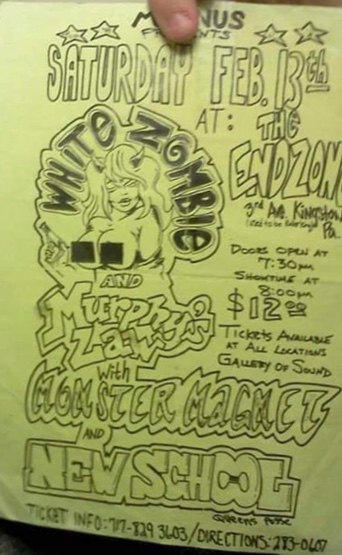 PRESENTS
SATURDAY FEB. 13th
AT: THE
ENDZONE
3rd Ave. Kingston
Pa.
WHITE ZOMBIE
DOORS OPEN AT
7:30pm
SHOWTIME AT
8:00pm
$12.00
TICKETS AVAILABLE
AT ALL LOCATIONS
GALLERY OF SOUND
AND
Murphy's
Law
with
MONSTER MAGNET
AND
NEW SCHOOL
QUEENS POSSE
TICKET INFO: 717-829 3603/DIRECTIONS: 283-0607